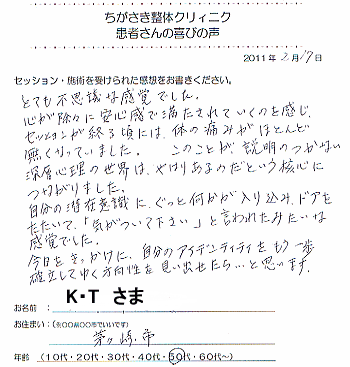 ちがさき整体クリィニク
患者さんの喜びの声
2011年 2月17日
セッション・施術を受けられた感想をお書きください。
とても不思議な感覚でした。
心が除々に安心感で満たされていくのを感じ、
セッションが終る頃には、体の痛みがほとんど
無くなっていました。 このことが、説明のつかない
深層心理の世界は、やはりあるのだという核心に
つながりました。
自分の潜在意識に、ぐっと何かが入り込み、ドアを
たたいて、「気がついて下さい」と言われたみたいな
感覚でした。
今日をきっかけに、自分のアイデンティティをもう一歩
確立してゆく方向性を見い出せたら…と思います。
お名前: K・T さま
お住まい:(※○○M○○市でいいです) 茅ヶ崎市
年齢 (10代・20代・30代・40代・50代・60代~)